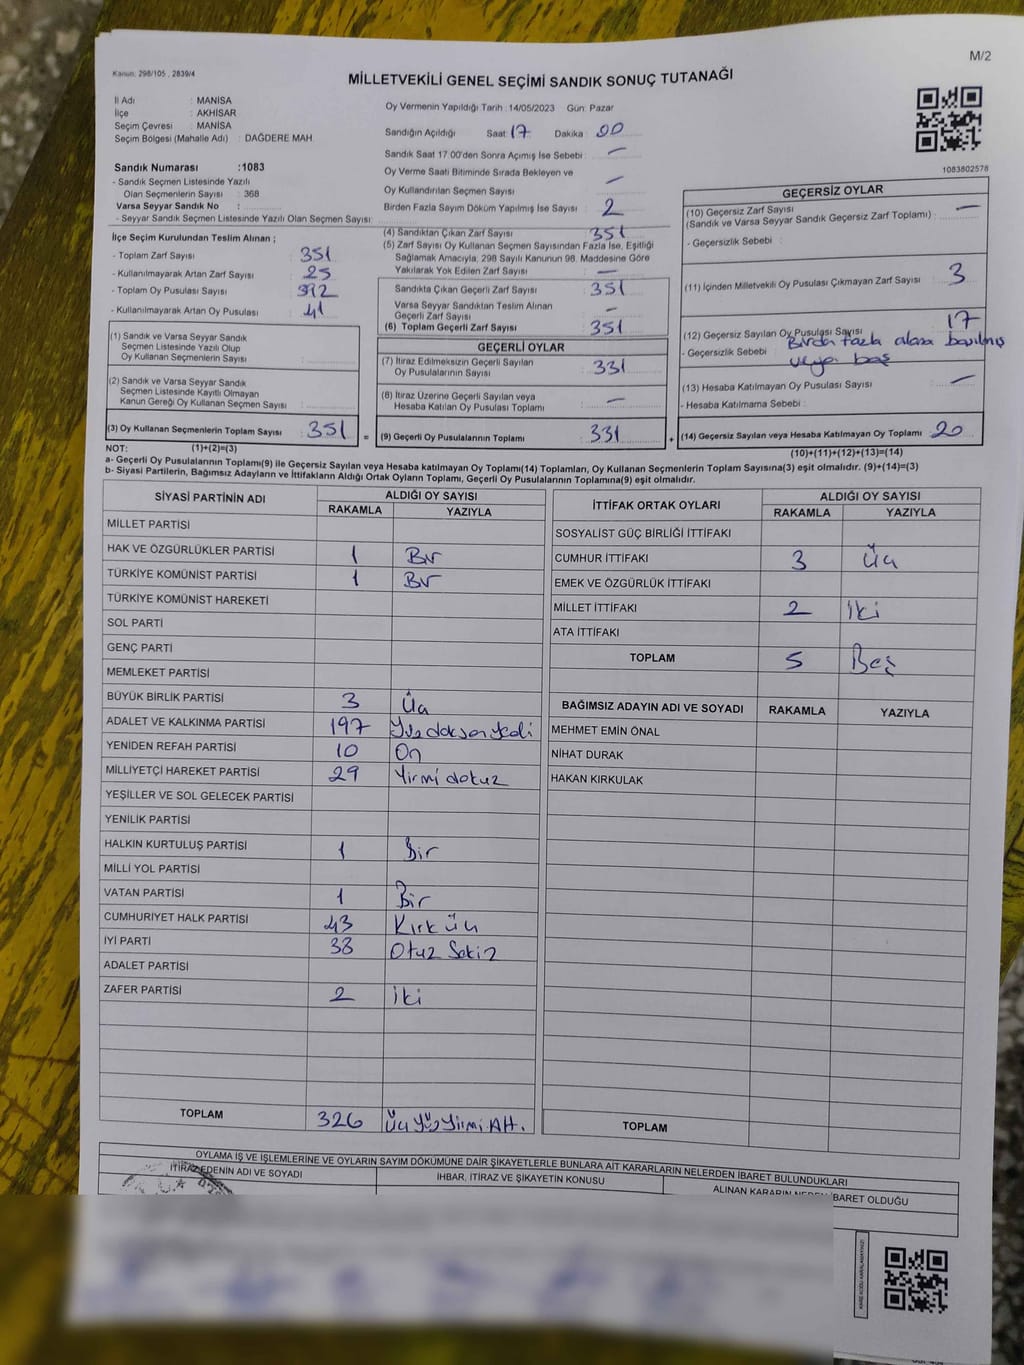 M/2
Kanun, 298/105 , 2839/4
MİLLETVEKİLİ GENEL SEÇİMİ SANDIK SONUÇ TUTANAĞI
İl Adı : MANİSA
İlçe : AKHİSAR
Seçim Çevresi : MANİSA
Seçim Bölgesi (Mahalle Adı) : DAĞDERE MAH
Sandık Numarası :1083
- Sandık Seçmen Listesinde Yazılı
Olan Seçmenlerin Sayısı : 368
Varsa Seyyar Sandık No :
- Seyyar Sandık Seçmen Listesinde Yazılı Olan Seçmen Sayısı:
Oy Vermenin Yapıldığı Tarih : 14/05/2023 Gün: Pazar
Sandığın Açıldığı Saat: 17 Dakika : 00
Sandık Saat 17:00'den Sonra Açımış İse Sebebi : —
Oy Verme Saati Bitiminde Sırada Bekleyen ve
Oy Kullandırılan Seçmen Sayısı —
Birden Fazla Sayım Döküm Yapılmış İse Sayısı : 2
1083802578
İlçe Seçim Kurulundan Teslim Alınan ;
- Toplam Zarf Sayısı : 351
- Kullanılmayarak Artan Zarf Sayısı : 25
- Toplam Oy Pusulası Sayısı : 392
- Kullanılmayarak Artan Oy Pusulası : 41
(1) Sandık ve Varsa Seyyar Sandık
Seçmen Listesinde Yazılı Olup
Oy Kullanan Seçmenlerin Sayısı :
(2) Sandık ve Varsa Seyyar Sandık
Seçmen Listesinde Kayıtlı Olmayan
Kanun Gereği Oy Kullanan Seçmen Sayısı :
(3) Oy Kullanan Seçmenlerin Toplam Sayısı : 351
(4) Sandıktan Çıkan Zarf Sayısı 351
(5) Zarf Sayısı Oy Kullanan Seçmen Sayısından Fazla İse, Eşitliği
Sağlamak Amacıyla, 298 Sayılı Kanunun 98. Maddesine Göre
Yakılarak Yok Edilen Zarf Sayısı —
Sandıkta Çıkan Geçerli Zarf Sayısı 351
Varsa Seyyar Sandıktan Teslim Alınan
Geçerli Zarf Sayısı —
(6) Toplam Geçerli Zarf Sayısı 351
GEÇERLİ OYLAR
(7) İtiraz Edilmeksizin Geçerli Sayılan
Oy Pusulalarının Sayısı 331
(8) İtiraz Üzerine Geçerli Sayılan veya
Hesaba Katılan Oy Pusulası Toplamı —
= (9) Geçerli Oy Pusulalarının Toplamı 331
GEÇERSİZ OYLAR
(10) Geçersiz Zarf Sayısı
(Sandık ve Varsa Seyyar Sandık Geçersiz Zarf Toplamı) : —
- Geçersizlik Sebebi :
(11) İçinden Milletvekili Oy Pusulası Çıkmayan Zarf Sayısı 3
(12) Geçersiz Sayılan Oy Pusulası Sayısı 17
- Geçersizlik Sebebi : Birden fazla alana basılmış
veya boş
(13) Hesaba Katılmayan Oy Pusulası Sayısı —
- Hesaba Katılmama Sebebi :
+ (14) Geçersiz Sayılan veya Hesaba Katılmayan Oy Toplamı 20
NOT: (1)+(2)=(3)
(10)+(11)+(12)+(13)=(14)
a- Geçerli Oy Pusulalarının Toplamı(9) ile Geçersiz Sayılan veya Hesaba katılmayan Oy Toplamı(14) Toplamları, Oy Kullanan Seçmenlerin Toplam Sayısına(3) eşit olmalıdır. (9)+(14)=(3)
b- Siyasi Partilerin, Bağımsız Adayların ve İttifakların Aldığı Ortak Oyların Toplamı, Geçerli Oy Pusulalarının Toplamına(9) eşit olmalıdır.
SİYASİ PARTİNİN ADI ALDIĞI OY SAYISI
RAKAMLA YAZIYLA
MİLLET PARTİSİ
HAK VE ÖZGÜRLÜKLER PARTİSİ 1 Bir
TÜRKİYE KOMÜNİST PARTİSİ 1 Bir
TÜRKİYE KOMÜNİST HAREKETİ
SOL PARTİ
GENÇ PARTİ
MEMLEKET PARTİSİ
BÜYÜK BİRLİK PARTİSİ 3 Üç
ADALET VE KALKINMA PARTİSİ 197 Yüzdoksanyedi
YENİDEN REFAH PARTİSİ 10 On
MİLLİYETÇİ HAREKET PARTİSİ 29 Yirmi dokuz
YEŞİLLER VE SOL GELECEK PARTİSİ
YENİLİK PARTİSİ
HALKIN KURTULUŞ PARTİSİ 1 Bir
MİLLİ YOL PARTİSİ
VATAN PARTİSİ 1 Bir
CUMHURİYET HALK PARTİSİ 43 Kırk üç
İYİ PARTİ 38 Otuz Sekiz
ADALET PARTİSİ
ZAFER PARTİSİ 2 İki
TOPLAM 326 Üç Yüz Yirmi Alt.
İTTİFAK ORTAK OYLARI ALDIĞI OY SAYISI
RAKAMLA YAZIYLA
SOSYALİST GÜÇ BİRLİĞİ İTTİFAKI
CUMHUR İTTİFAKI 3 Üç
EMEK VE ÖZGÜRLÜK İTTİFAKI
MİLLET İTTİFAKI 2 İki
ATA İTTİFAKI
TOPLAM 5 Beş
BAĞIMSIZ ADAYIN ADI VE SOYADI RAKAMLA YAZIYLA
MEHMET EMİN ÖNAL
NİHAT DURAK
HAKAN KIRKULAK
TOPLAM
OYLAMA İŞ VE İŞLEMLERİNE VE OYLARIN SAYIM DÖKÜMÜNE DAİR ŞİKAYETLERLE BUNLARA AİT KARARLARIN NELERDEN İBARET BULUNDUKLARI
İTİRAZ EDENİN ADI VE SOYADI İHBAR, İTİRAZ VE ŞİKAYETİN KONUSU ALINAN KARARIN NEDEN İBARET OLDUĞU